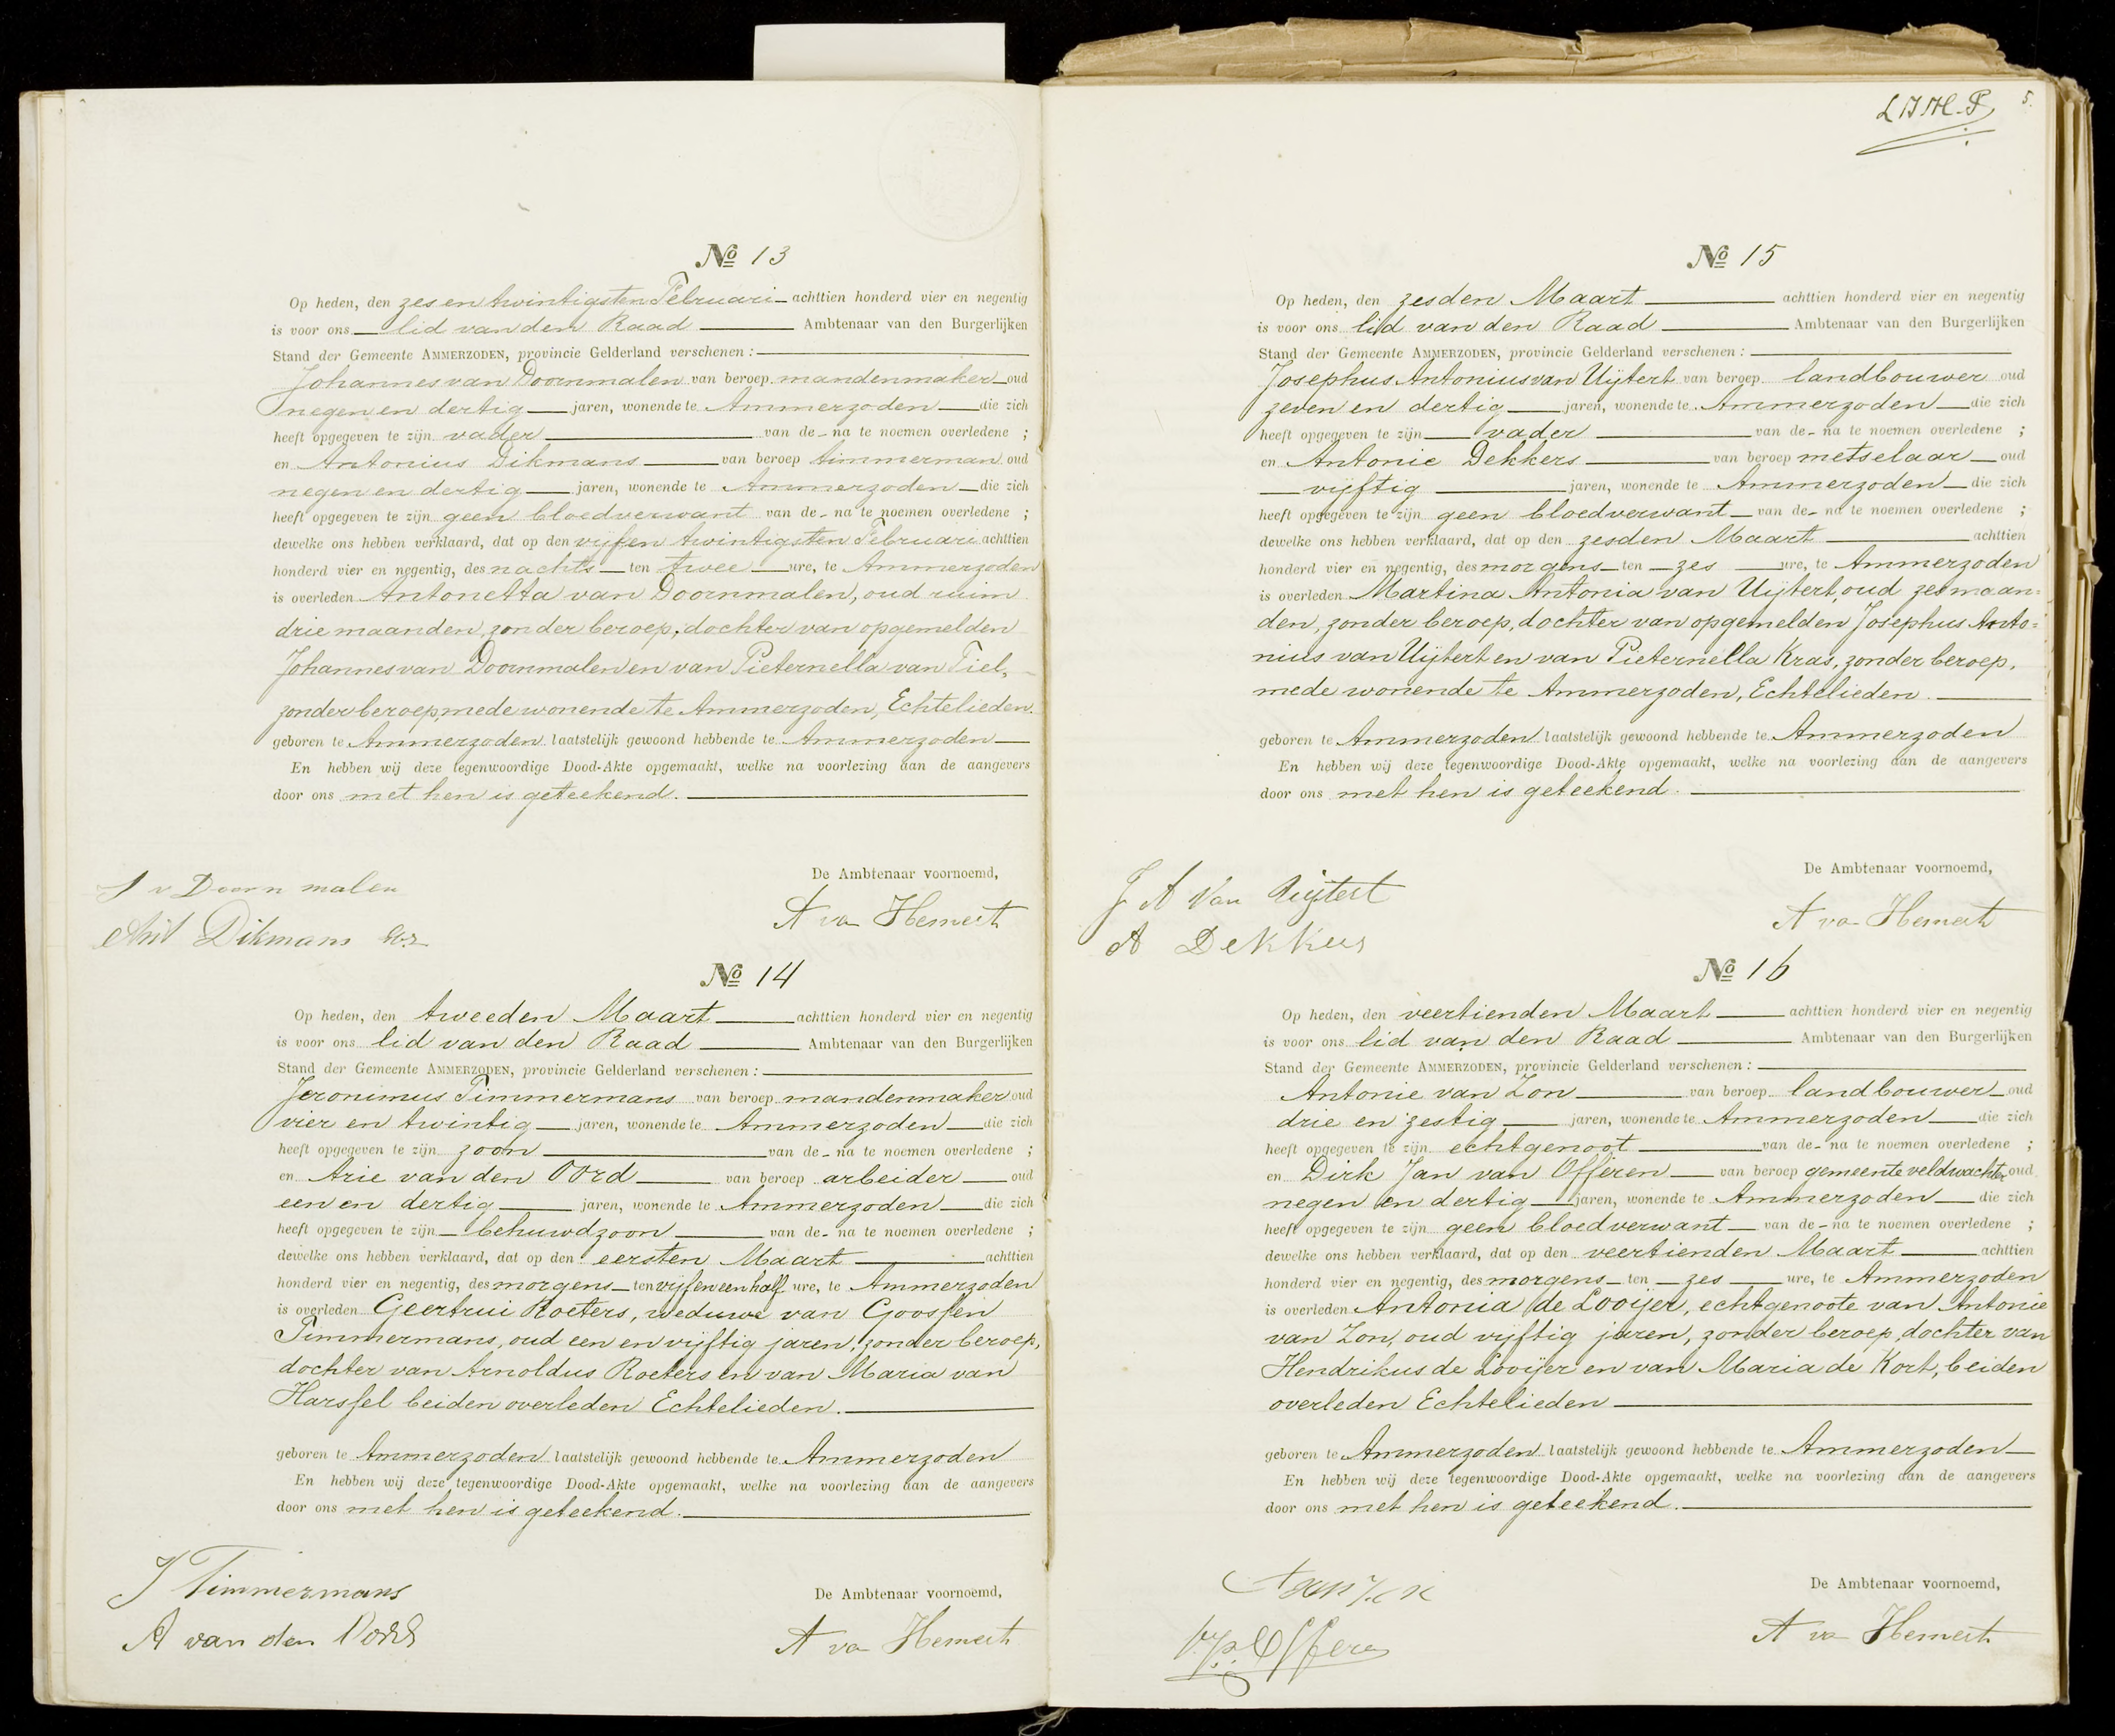 Nº 13
Op heden, den zes en twintigsten Februari achttien honderd vier en negentig
is voor ons lid van den Raad Ambtenaar van den Burgerlijken
Stand der Gemeente AMMERZODEN, provincie Gelderland verschenen :
Johannes van Doornmalen van beroep mandenmaker oud
negen en dertig jaren, wonende te Ammerzoden die zich
heeft opgegeven te zijn vader van de na te noemen overledene ;
en Antonius Dikmans van beroep timmerman oud
negen en dertig jaren, wonende te Ammerzoden die zich
heeft opgegeven te zijn geen bloedverwant van de na te noemen overledene ;
dewelke ons hebben verklaard, dat op den vijf en twintigsten Februari achttien
honderd vier en negentig, des nachts ten twee ure, te Ammerzoden
is overleden Antonetta van Doornmalen, oud ruim
drie maanden, zonder beroep, dochter van opgemelden
Johannes van Doornmalen en van Pieternella van Tiel,
zonder beroep, mede wonende te Ammerzoden, Echtelieden.
geboren te Ammerzoden laatstelijk gewoond hebbende te Ammerzoden
En hebben wij deze tegenwoordige Dood-Akte opgemaakt, welke na voorlezing aan de aangevers
door ons met hen is geteekend.
De Ambtenaar voornoemd,
J v Doornmalen
A va Hemert
Ant Dikmans
Nº 14
Op heden, den tweeden Maart achttien honderd vier en negentig
is voor ons lid van den Raad Ambtenaar van den Burgerlijken
Stand der Gemeente AMMERZODEN, provincie Gelderland verschenen :
Jeronimus Timmermans van beroep mandenmaker oud
vier en twintig jaren, wonende te Ammerzoden die zich
heeft opgegeven te zijn zoon van de na te noemen overledene ;
en Arie van den Oord van beroep arbeider oud
een en dertig jaren, wonende te Ammerzoden die zich
heeft opgegeven te zijn behuwdzoon van de na te noemen overledene ;
dewelke ons hebben verklaard, dat op den eersten Maart achttien
honderd vier en negentig, des morgens ten vijf en een half ure, te Ammerzoden
is overleden Geertrui Roeters, weduwe van Goossen
Timmermans, oud een en vijftig jaren, zonder beroep,
dochter van Arnoldus Roeters en van Maria van
Harssel beiden overleden Echtelieden.
geboren te Ammerzoden laatstelijk gewoond hebbende te Ammerzoden
En hebben wij deze tegenwoordige Dood-Akte opgemaakt, welke na voorlezing aan de aangevers
door ons met hen is geteekend.
J Timmermans
De Ambtenaar voornoemd,
A van den Oord
A va Hemert
5.
Nº 15
Op heden, den zesden Maart achttien honderd vier en negentig
is voor ons lid van den Raad Ambtenaar van den Burgerlijken
Stand der Gemeente AMMERZODEN, provincie Gelderland verschenen :
Josephus Antonius van Uijtert van beroep landbouwer oud
zeven en dertig jaren, wonende te Ammerzoden die zich
heeft opgegeven te zijn vader van de na te noemen overledene ;
en Antonie Dekkers van beroep metselaar oud
vijftig jaren, wonende te Ammerzoden die zich
heeft opgegeven te zijn geen bloedverwant van de na te noemen overledene ;
dewelke ons hebben verklaard, dat op den zesden Maart achttien
honderd vier en negentig, des morgens ten zes ure, te Ammerzoden
is overleden Martina Antonia van Uijtert, oud zes maan=
den, zonder beroep, dochter van opgemelden Josephus Anto=
nius van Uijtert en van Pieternella Kras, zonder beroep,
mede wonende te Ammerzoden, Echtelieden.
geboren te Ammerzoden laatstelijk gewoond hebbende te Ammerzoden
En hebben wij deze tegenwoordige Dood-Akte opgemaakt, welke na voorlezing aan de aangevers
door ons met hen is geteekend.
De Ambtenaar voornoemd,
J A Van Uijtert
A va Hemert
A Dekkers
Nº 16
Op heden, den veertienden Maart achttien honderd vier en negentig
is voor ons lid van den Raad Ambtenaar van den Burgerlijken
Stand der Gemeente AMMERZODEN, provincie Gelderland verschenen :
Antonie van Zon van beroep landbouwer oud
drie en zestig jaren, wonende te Ammerzoden die zich
heeft opgegeven te zijn echtgenoot van de na te noemen overledene ;
en Dirk Jan van Offeren van beroep gemeente veldwachter oud
negen en dertig jaren, wonende te Ammerzoden die zich
heeft opgegeven te zijn geen bloedverwant van de na te noemen overledene ;
dewelke ons hebben verklaard, dat op den veertienden Maart achttien
honderd vier en negentig, des morgens ten zes ure, te Ammerzoden
is overleden Antonia de Looijer, echtgenoote van Antonie
van Zon, oud vijftig jaren, zonder beroep, dochter van
Hendrikus de Looijer en van Maria de Kort, beiden
overleden Echtelieden
geboren te Ammerzoden laatstelijk gewoond hebbende te Ammerzoden
En hebben wij deze tegenwoordige Dood-Akte opgemaakt, welke na voorlezing aan de aangevers
door ons met hen is geteekend.
De Ambtenaar voornoemd,
A va Hemert